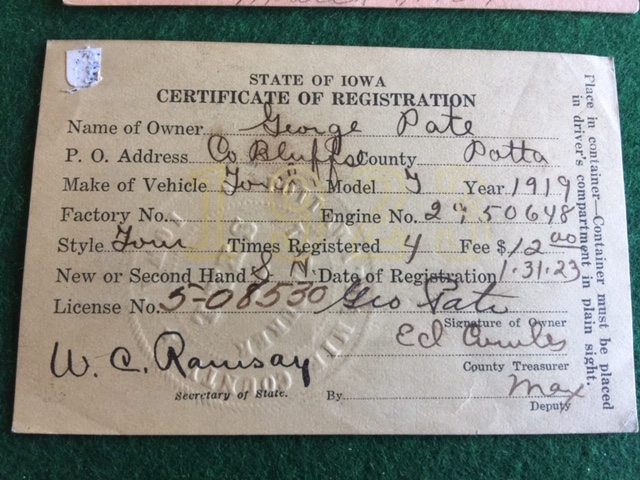 STATE OF IOWA
CERTIFICATE OF REGISTRATION
Name of Owner George Pate
P. O. Address Co Bluffs County Potta
Make of Vehicle Ford Model T Year 1919
Factory No. Engine No. 2950648
Style Tour Times Registered 4 Fee $ 12.00
New or Second Hand S N. Date of Registration 1-31-23
License No. 5-08530 Geo Pate
Signature of Owner
Ed
County Treasurer
W. C. Ramsay
Secretary of State.
By Max
Deputy
Place in container—Container must be placed
in driver's compartment in plain sight.
1923